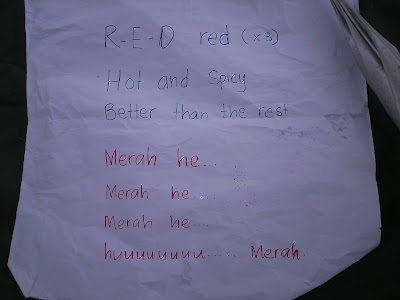 R-E-D red (x3)
Hot and Spicy
Better than the rest
Merah he.....
Merah he....
Merah he....
huuuuuuuu..... Merah